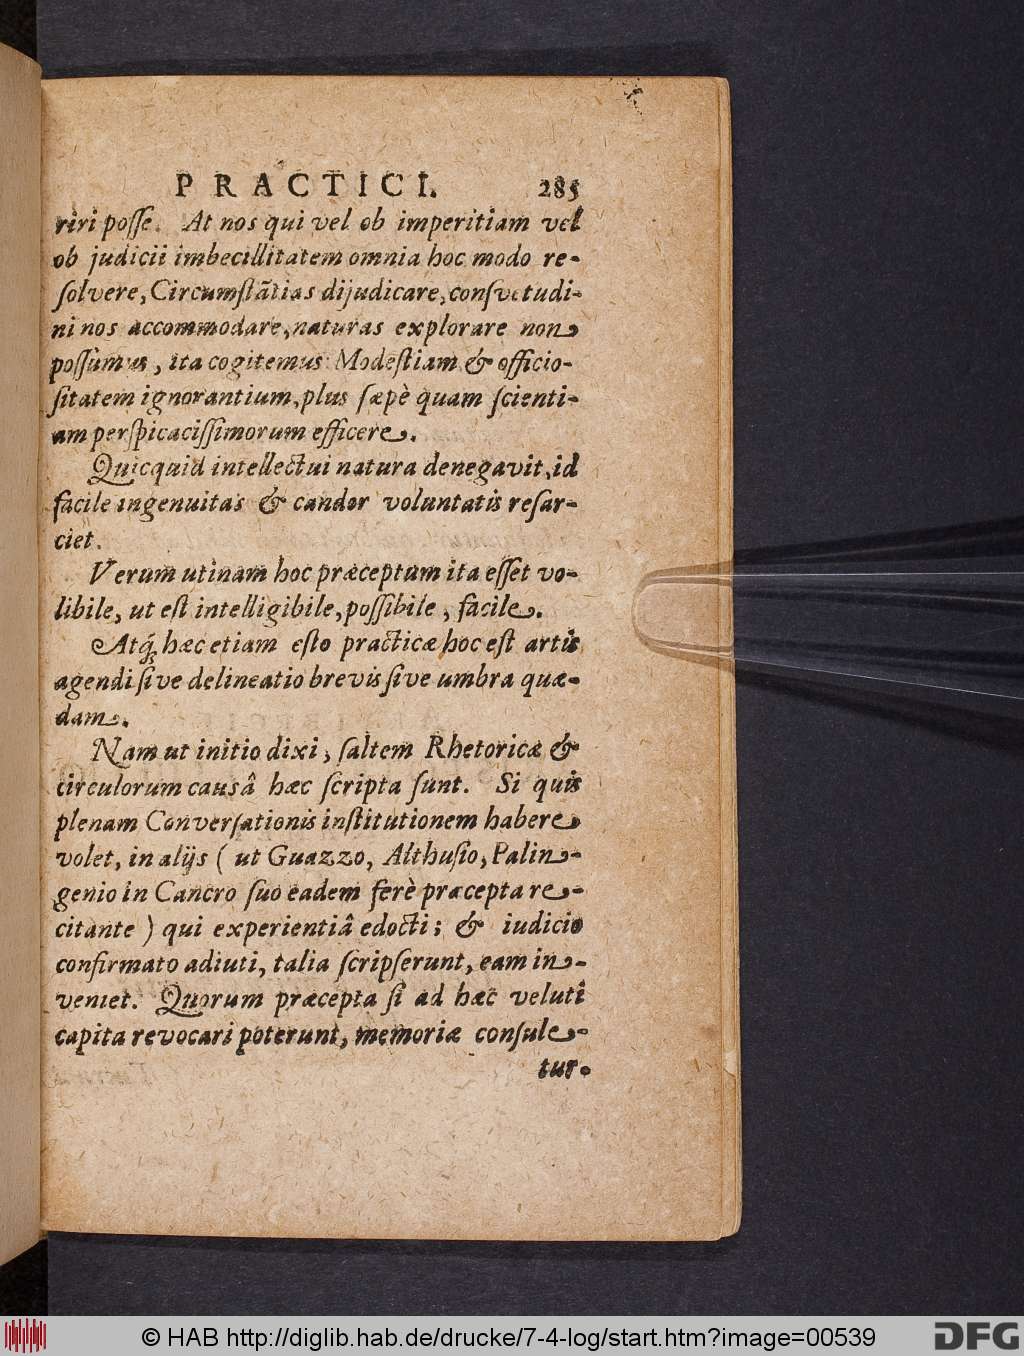 PRACTICI. 285
riri posse. At nos qui vel ob imperitiam vel
ob judicii imbecillitatem omnia hoc modo re-
solvere, Circumstātias dijudicare, consvetudi-
ni nos accommodare, naturas explorare non
possumus, ita cogitemus Modestiam & officio-
sitatem ignorantium, plus sæpè quam scienti-
am perspicacissimorum efficere.
Quicquid intellectui natura denegavit, id
facile ingenuitas & candor voluntatis resar-
ciet.
Verum utinam hoc præceptum ita esset vo-
libile, ut est intelligibile, possibile, facile.
Atq́; hæc etiam esto practicæ hoc est artis
agendi sive delineatio brevis sive umbra quæ-
dam.
Nam ut initio dixi, saltem Rhetoricæ &
circulorum causâ hæc scripta sunt. Si quis
plenam Conversationis institutionem habere
volet, in alijs ( ut Guazzo, Althusio, Palin-
genio in Cancro suo eadem ferè præcepta re-
citante ) qui experientiâ edocti; & iudicio
confirmato adiuti, talia scripserunt, eam in-
veniet. Quorum præcepta si ad hæc veluti
capita revocari poterunt, memoriæ consule-
tur.
© HAB http://diglib.hab.de/drucke/7-4-log/start.htm?image=00539
DFG